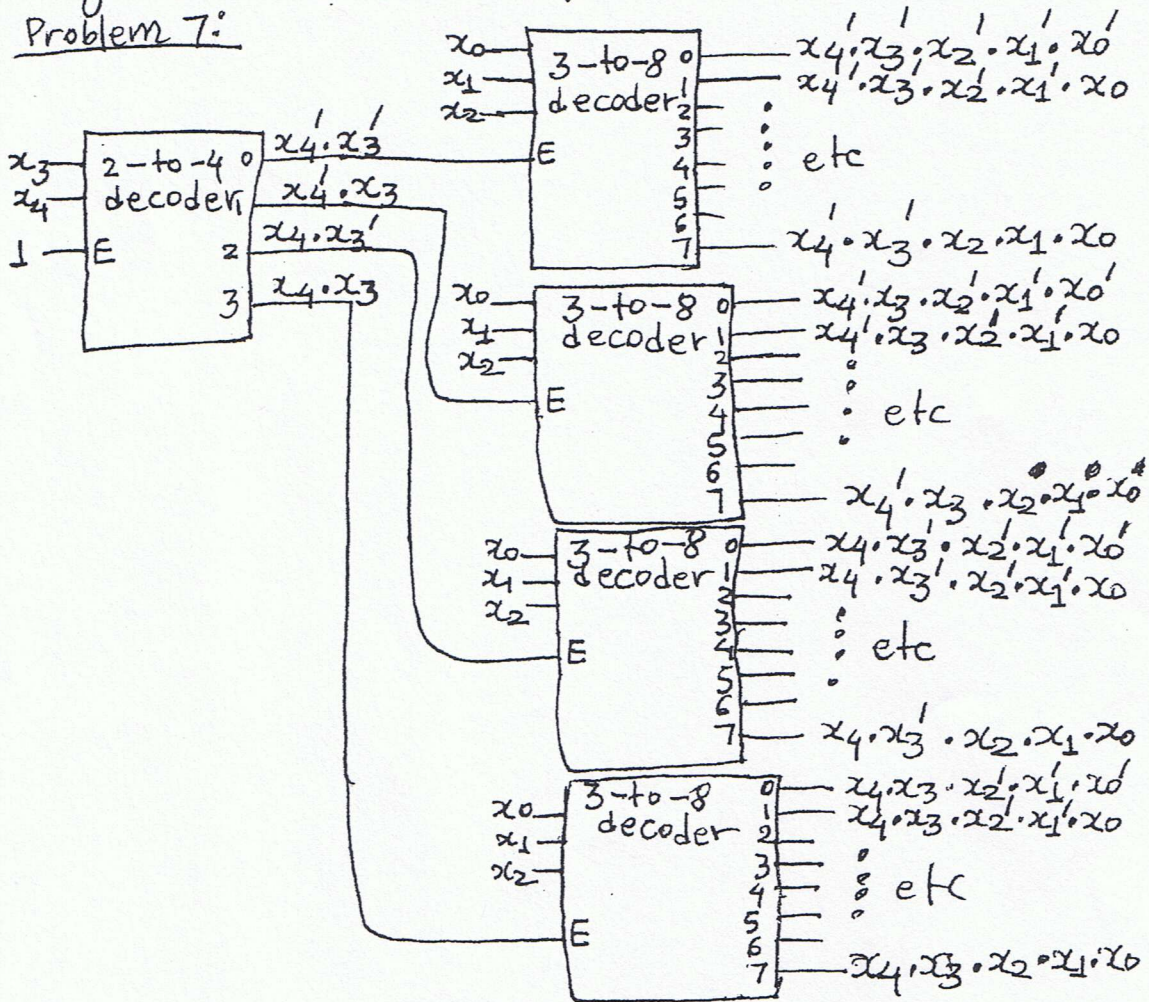 Problem 7:
x0
x1
x2
3-to-8
decoder
E
0
1
2
3
4
5
6
7
x4'·x3'·x2'·x1'·x0'
x4'·x3'·x2'·x1'·x0
etc
x4'·x3'·x2·x1·x0
x3
x4
1
2-to-4
decoder
E
0
1
2
3
x4'·x3'
x4'·x3
x4·x3'
x4·x3
x0
x1
x2
3-to-8
decoder
E
0
1
2
3
4
5
6
7
x4'·x3·x2'·x1'·x0'
x4'·x3·x2'·x1'·x0
etc
x4'·x3·x2·x1·x0
x0
x1
x2
3-to-8
decoder
E
0
1
2
3
4
5
6
7
x4·x3'·x2'·x1'·x0'
x4·x3'·x2'·x1'·x0
etc
x4·x3'·x2·x1·x0
x0
x1
x2
3-to-8
decoder
E
0
1
2
3
4
5
6
7
x4·x3·x2'·x1'·x0'
x4·x3·x2'·x1'·x0
etc
x4·x3·x2·x1·x0